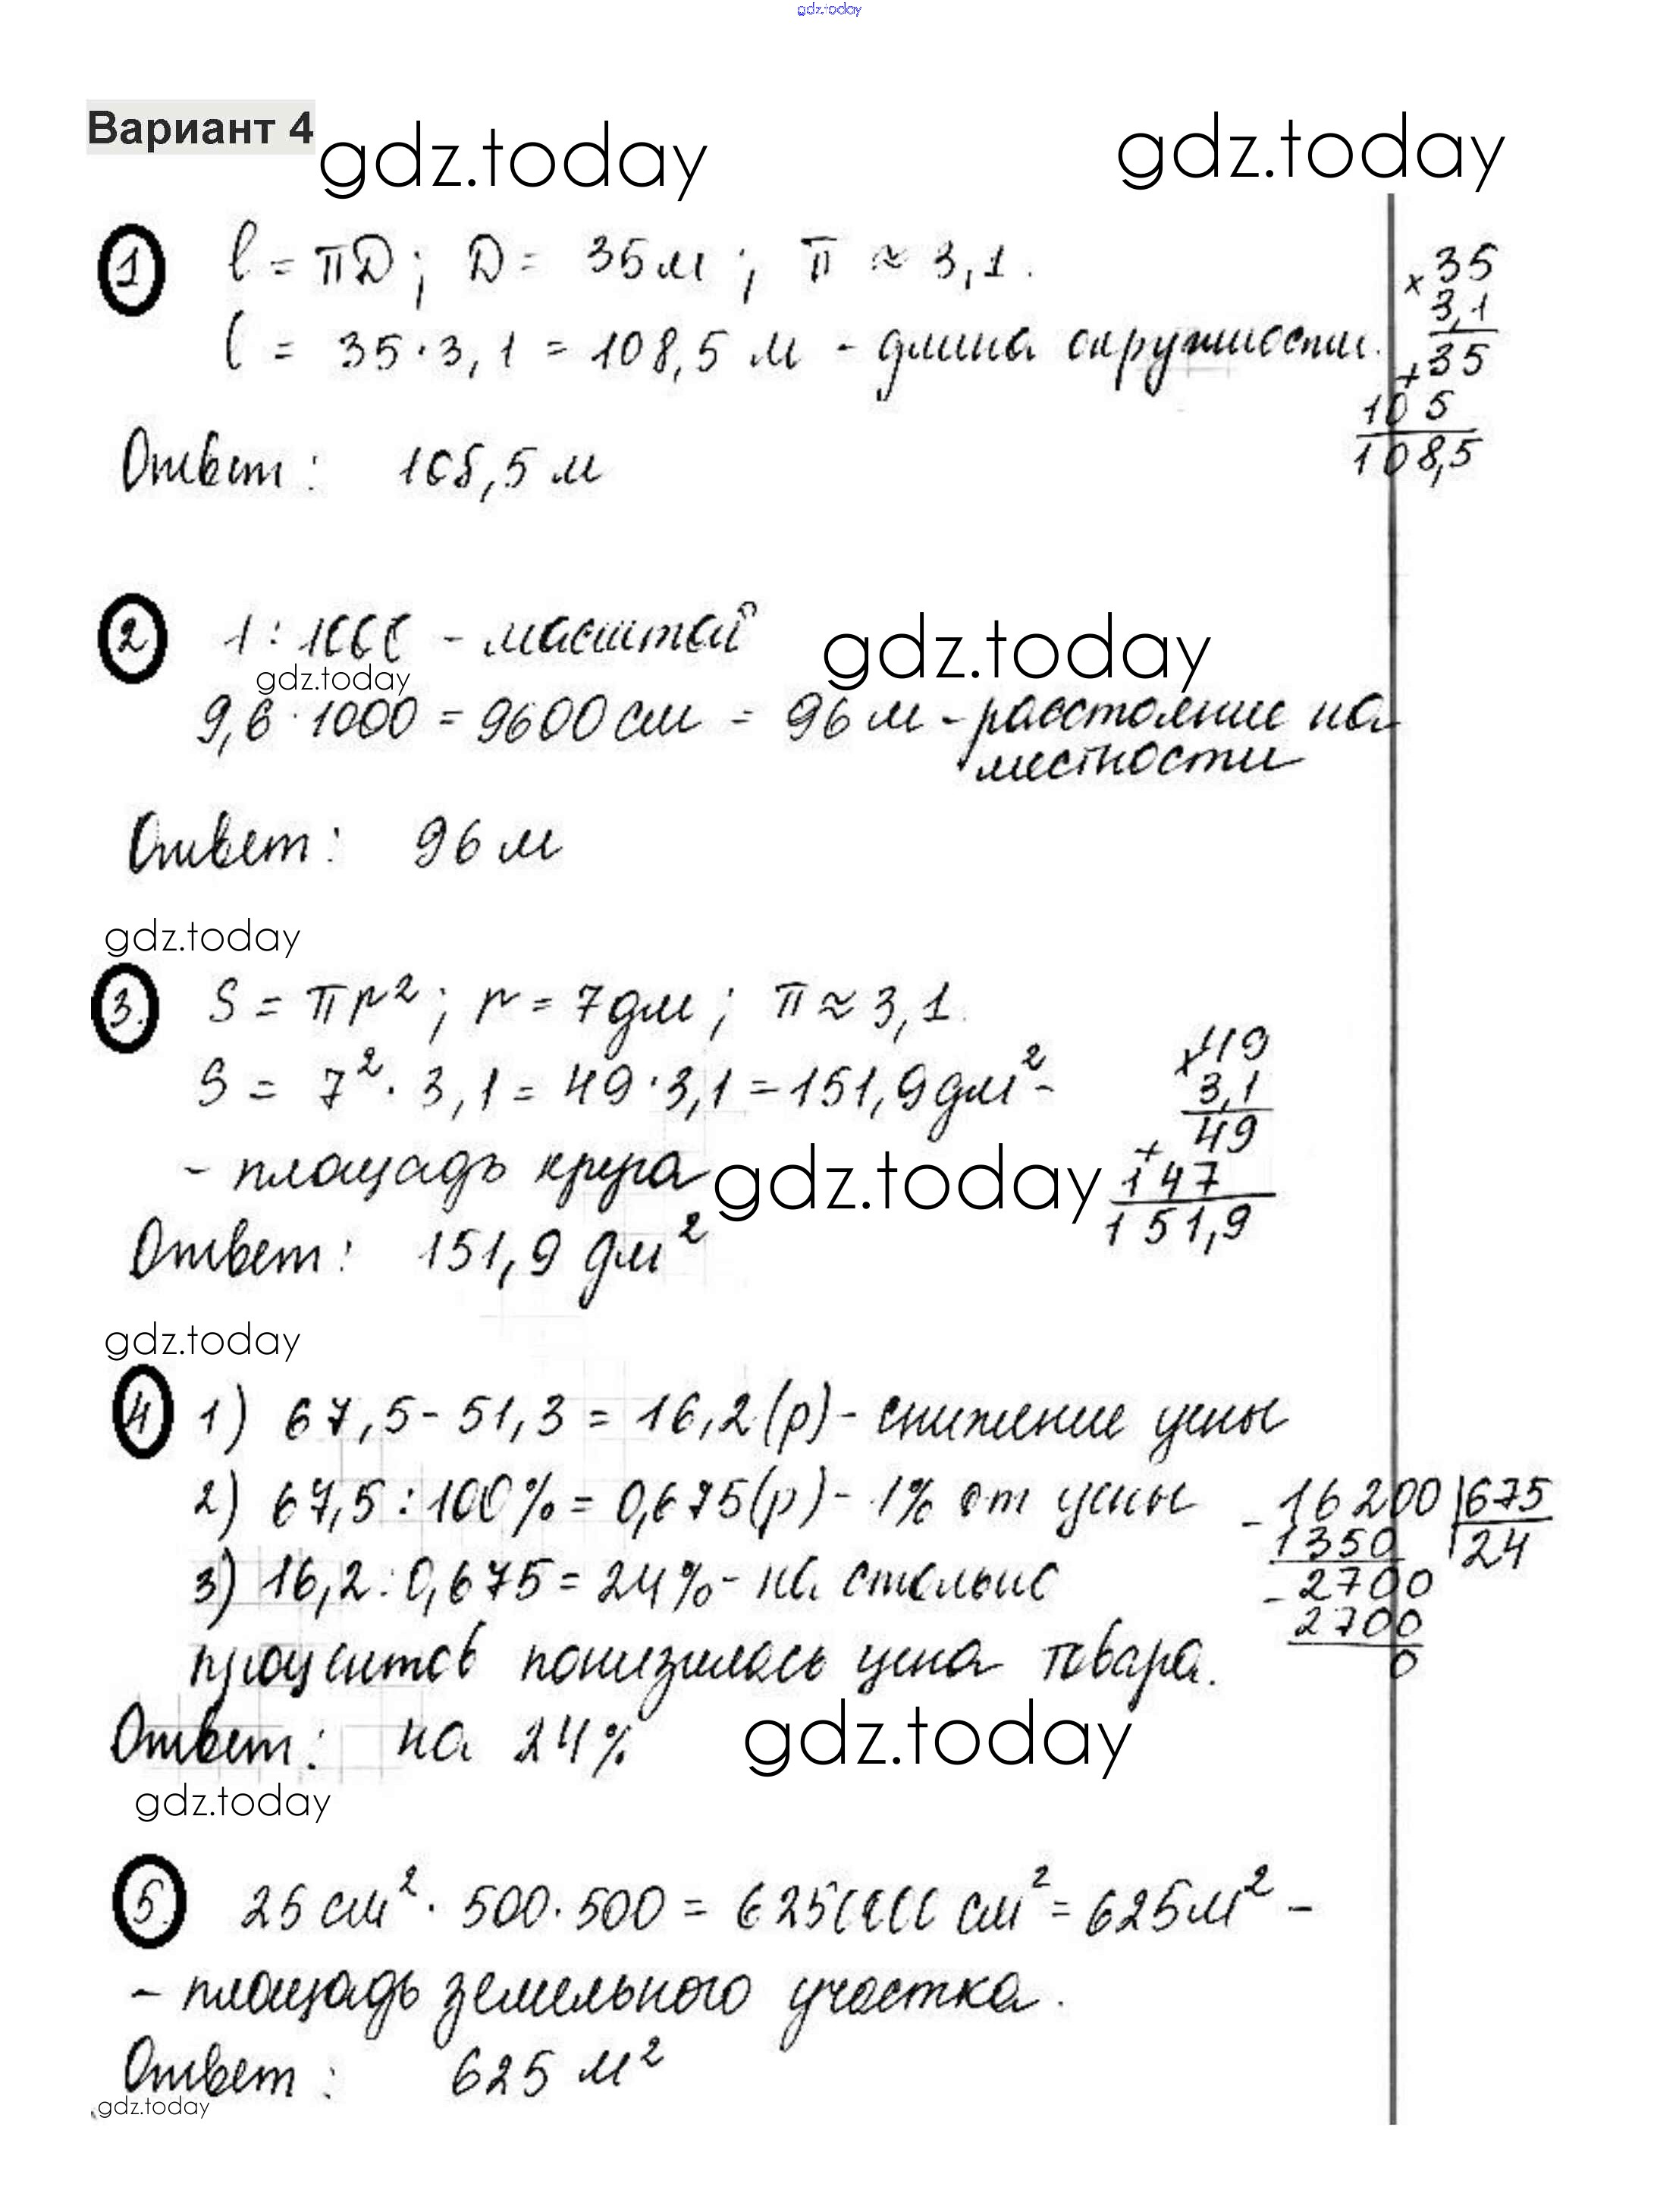 gdz.today
Вариант 4
gdz.today
gdz.today
1 l = πD; D = 35 м; π ≈ 3,1.
l = 35·3,1 = 108,5 м - длина окружности.
× 35
3,1
+ 35
105
108,5
Ответ: 108,5 м
2 1 : 1000 - масштаб
gdz.today
gdz.today
9,6 · 1000 = 9600 см = 96 м - расстояние на
местности
Ответ: 96 м
gdz.today
3. S = πr²; r = 7 дм; π ≈ 3,1.
S = 7² · 3,1 = 49·3,1 = 151,9 дм² -
- площадь круга
gdz.today
× 49
3,1
+ 49
147
151,9
Ответ: 151,9 дм²
gdz.today
4 1) 67,5 - 51,3 = 16,2 (р) - снижение цены
2) 67,5 : 100% = 0,675 (р) - 1% от цены
3) 16,2 : 0,675 = 24% - на столько
процентов понизилась цена товара.
- 16200 | 675
1350 24
- 2700
2700
0
Ответ: на 24%
gdz.today
gdz.today
5. 25 см² · 500·500 = 6250000 см² = 625 м² -
- площадь земельного участка.
Ответ: 625 м²
gdz.today